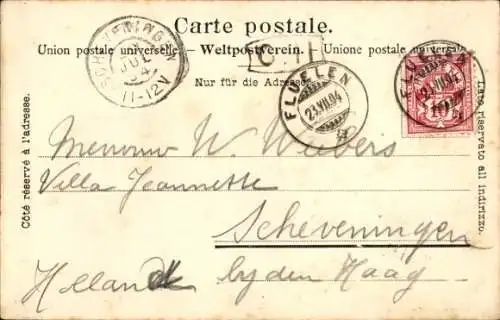 Carte postale.
Union postale universelle. – Weltpostverein. – Unione postale universale
Nur für die Adresse.
SCHEVENINGEN
JUL
04
11-12V
FLUELEN
23.VII.04
FLUELEN
23.VII.04
10
Côté réservé à l'adresse.
Lato riservato all indirizzo.
W. Weebers
Villa Jeannette
Scheveningen
Holland by den Haag